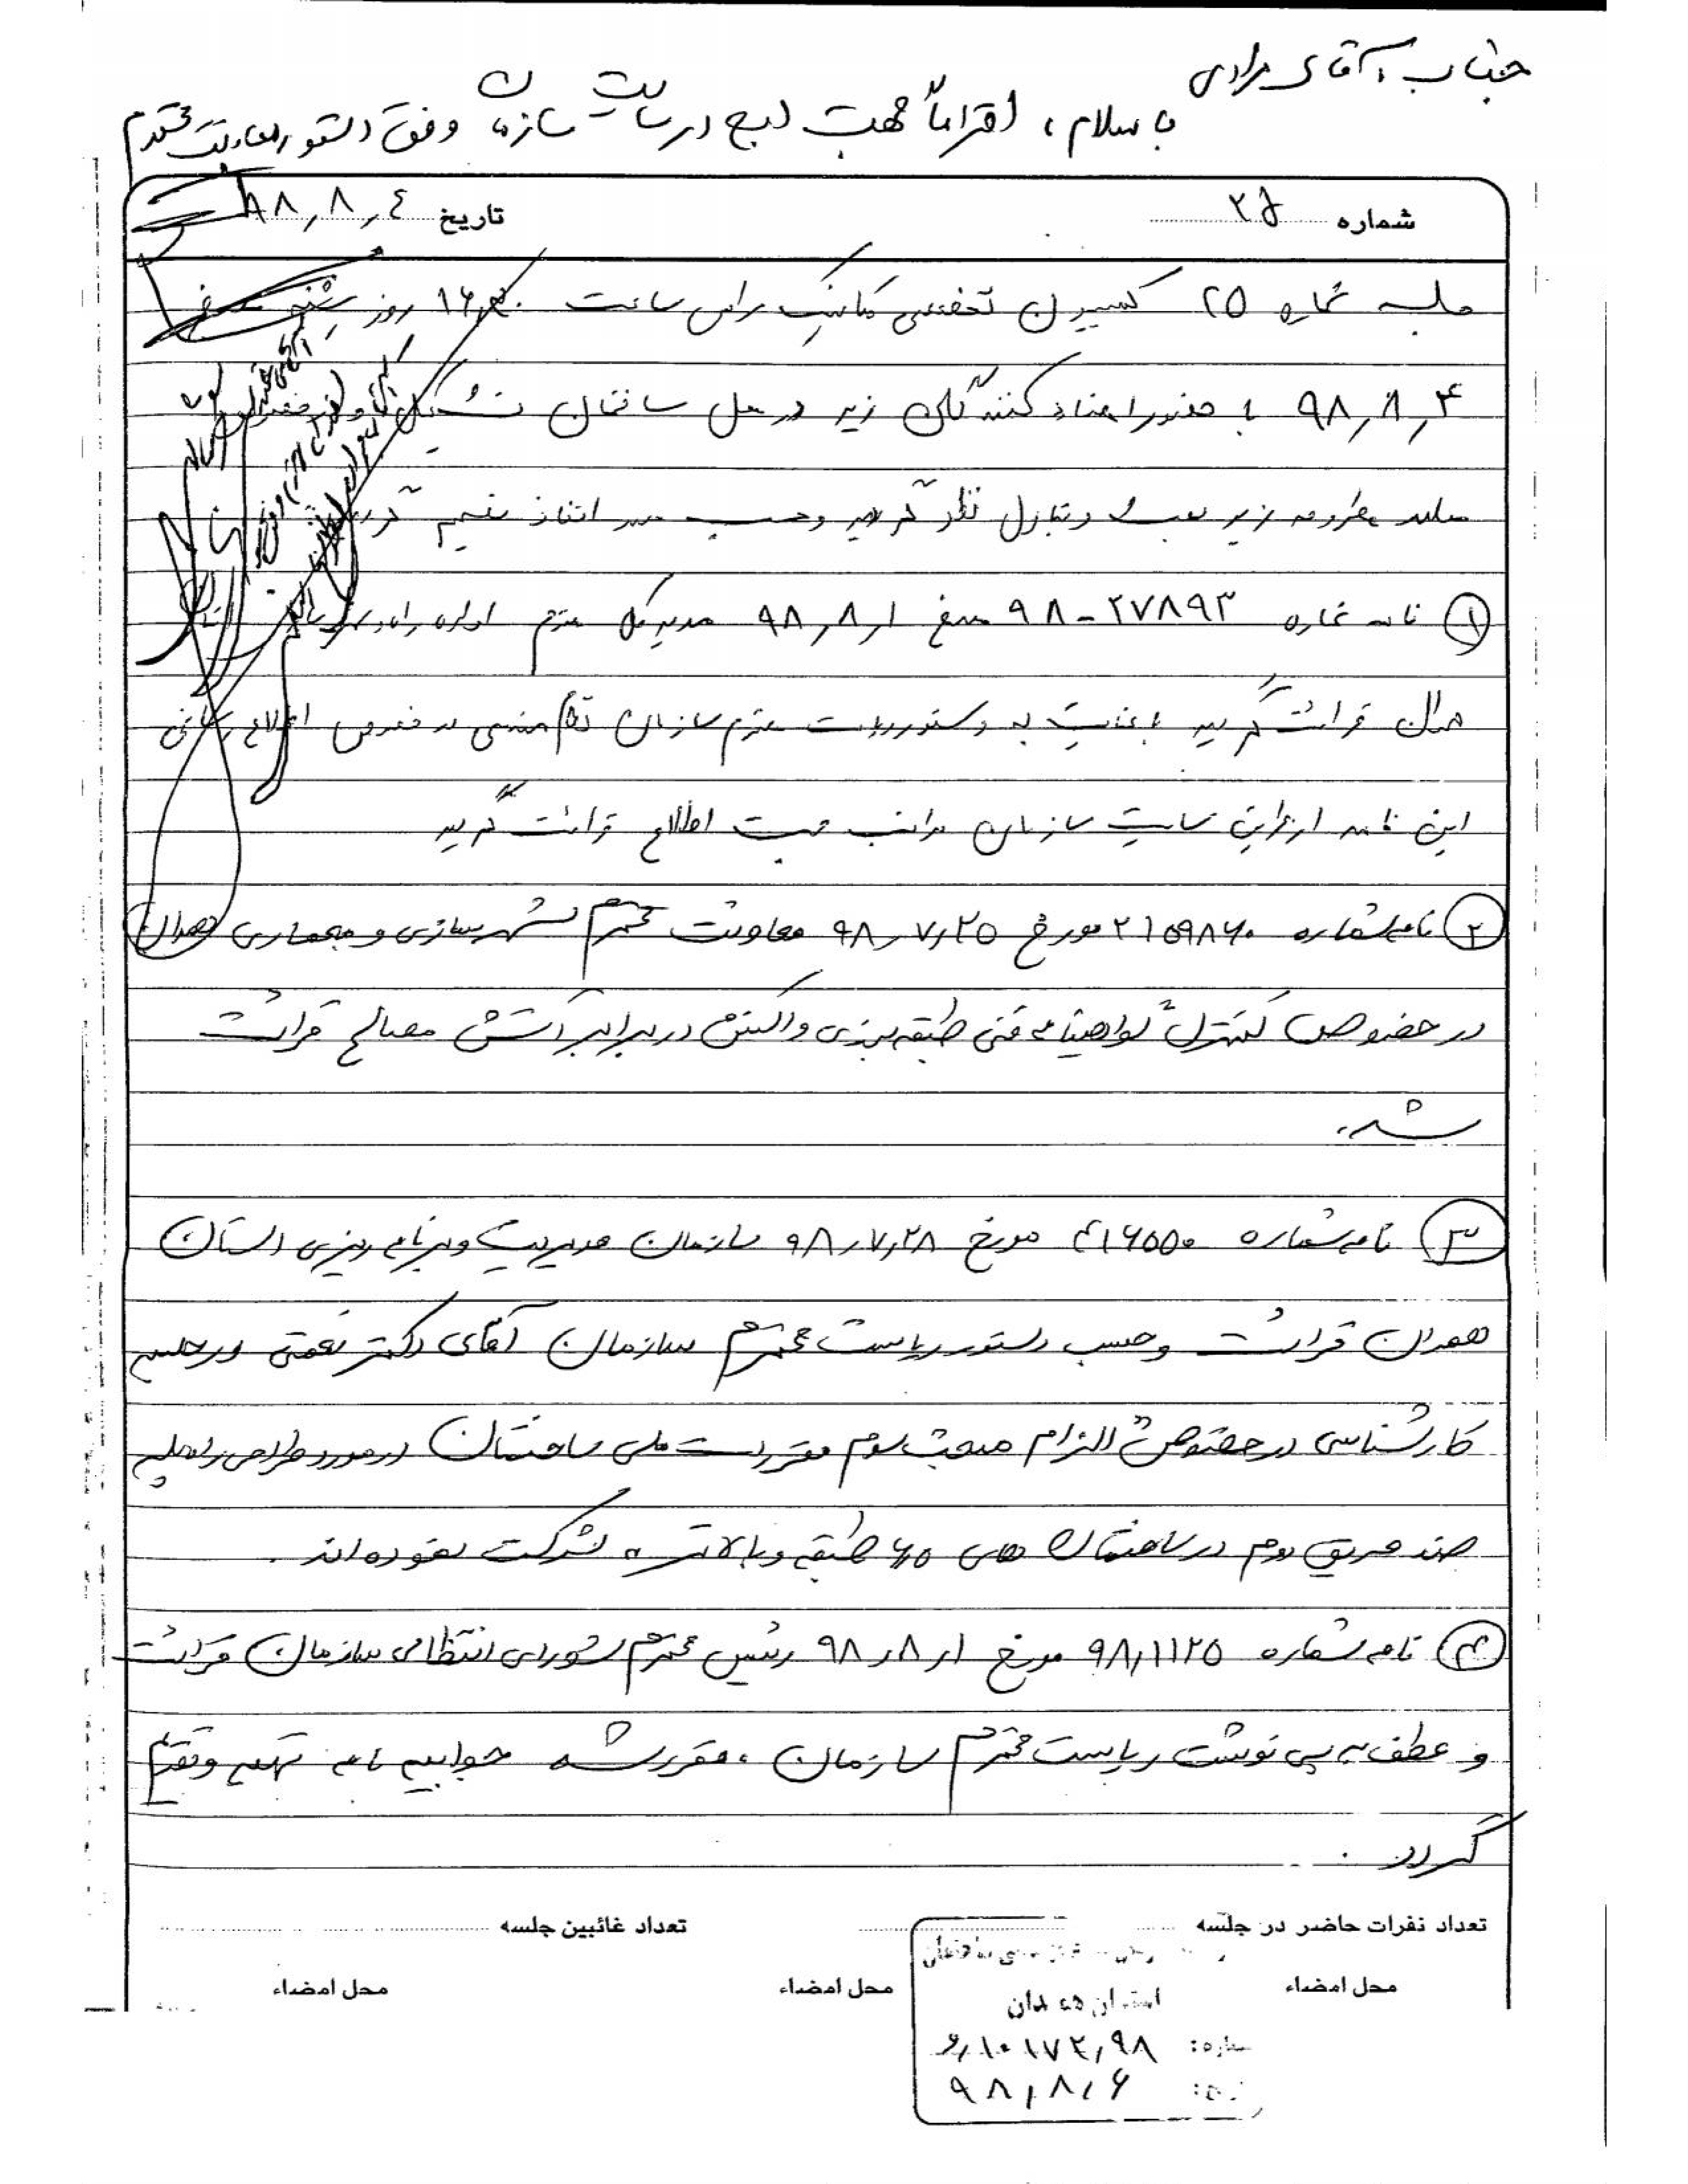 جناب آقای مرادی
با سلام، احتراماً جهت درج در سایت سازمان وفق دستور معاونت محترم
شماره ۲۵
تاریخ ۹۸,۸,۴
جلسه شماره ۲۵ کمیسیون تخصصی مکانیک راس ساعت روز شنبه مورخ
۹۸,۸,۴ با حضور امضاء کنندگان زیر در محل ساختمان تشکیل و
مسایل مطروحه زیر بحث و تبادل نظر گردید و حسب مورد اتخاذ تصمیم گردید
① نامه شماره ۲۷۸۹۳-۹۸ مورخ ۹۸,۸,۱ مدیر کل محترم اداره راه و شهرسازی استان
همدان قرائت گردید با عنایت به دستور ریاست محترم سازمان نظام مهندسی در خصوص اطلاع رسانی
این نامه از طریق سایت سازمان مراتب جهت اطلاع قرائت گردید
② نامه شماره ۲۱۵۹۸۶۰ مورخ ۹۸,۷,۲۵ معاونت محترم شهرسازی و معماری همدان
در خصوص کنترل گواهینامه فنی طبقه بندی واکنش در برابر آتش مصالح قرائت
شد.
③ نامه شماره ۴۱۶۵۵۰ مورخ ۹۸,۷,۲۸ سازمان مدیریت و برنامه ریزی استان
همدان قرائت و حسب دستور ریاست محترم سازمان آقای دکتر نعمتی در جلسه
کارشناسی در خصوص الزام مبحث سوم مقررات ملی ساختمان در مورد طراحی راه پله
ضد حریق دوم در ساختمان های طبقه و بالاتر شرکت نموده اند.
④ نامه شماره ۹۸,۱۱۲۵ مورخ ۹۸,۸,۱ رئیس محترم شورای انتظامی سازمان قرائت
و عطف به پی نوشت ریاست محترم سازمان، مقرر شد جوابیه نامه تهیه و تقدیم
گردد.
تعداد نفرات حاضر در جلسه
تعداد غائبین جلسه
محل امضاء
محل امضاء
محل امضاء
استان همدان
شماره: ۹۸,۱۰۱۷۴,و
۹۸,۸,۶